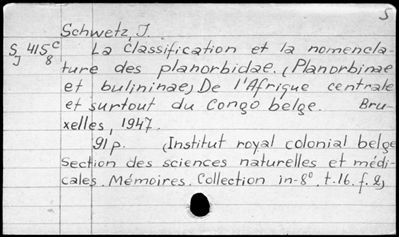 S
Schwetz, J.
S 415 c
J 8
La classification et la nomencla-
ture des planorbidae. (Planorbinae
et bulininae) De l'Afrique centrale
et surtout du Congo belge. Bru-
xelles, 1947.
91 p. (Institut royal colonial belge
Section des sciences naturelles et médi-
cales. Mémoires. Collection in-8°. t.16. f.2)